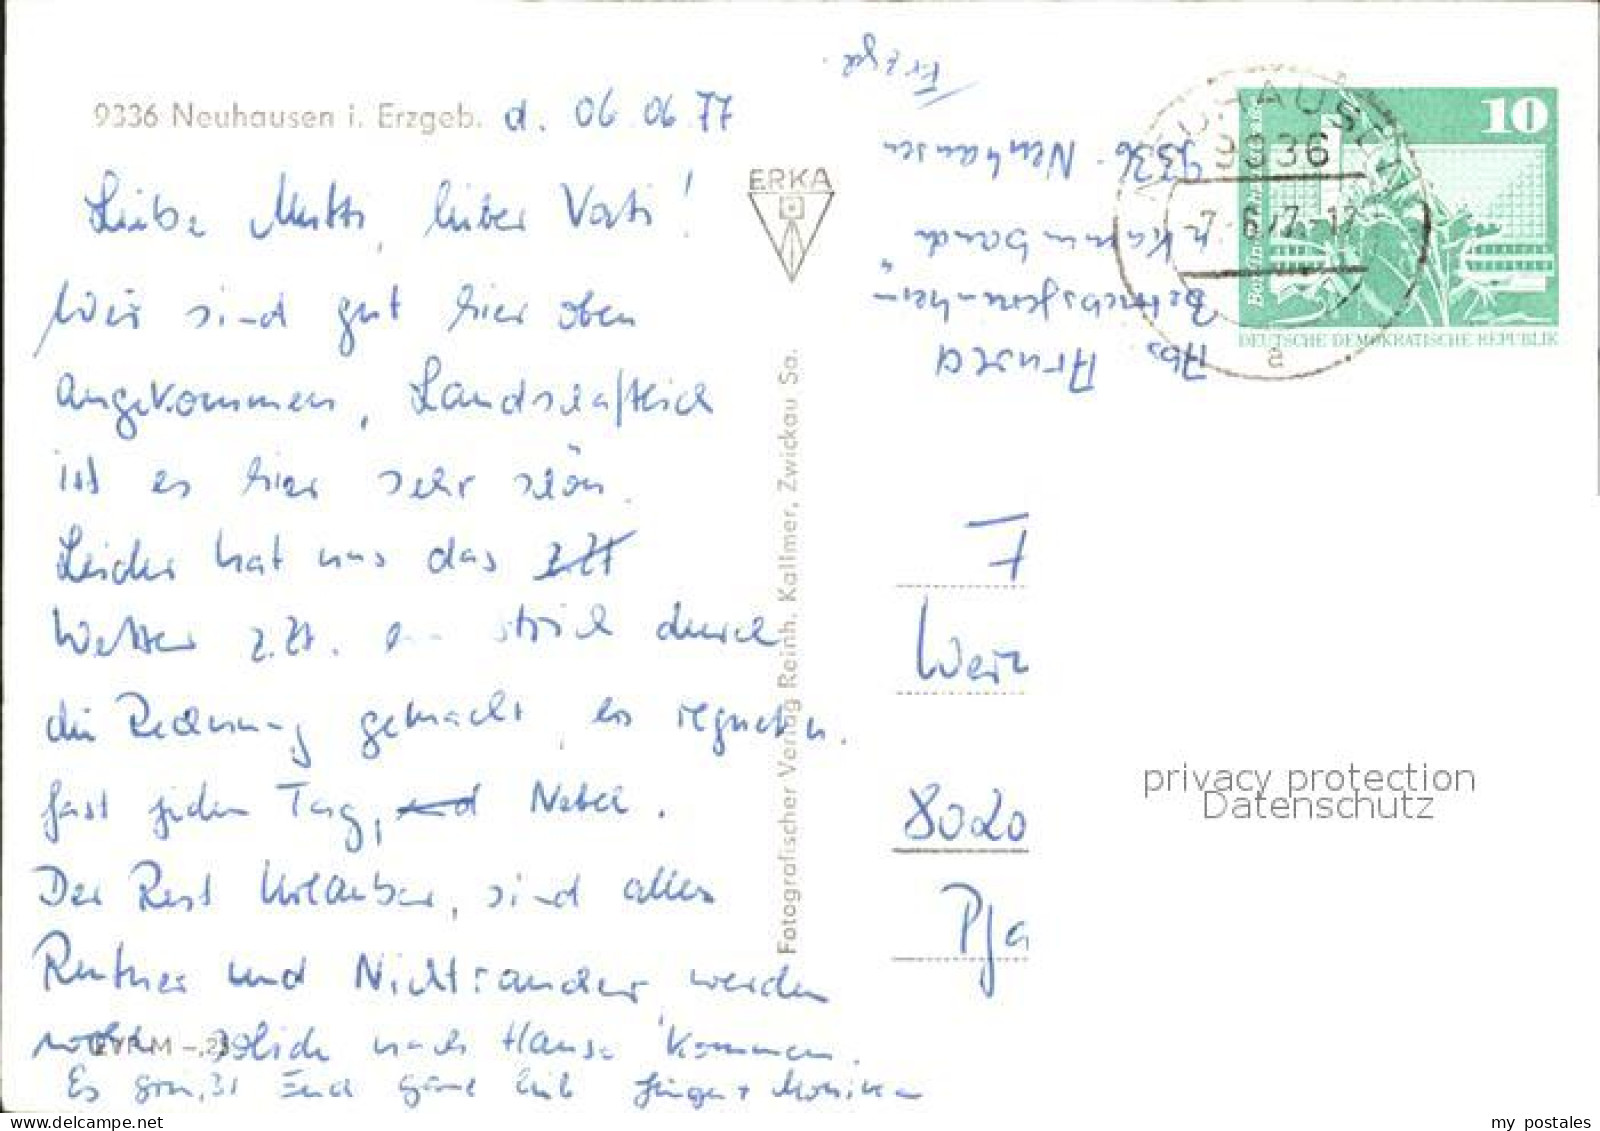 9336 Neuhausen i. Erzgeb. d. 06.06.77
Liebe Mutti, lieber Vati!
Wir sind gut hier oben
angekommen, Landschaftlich
ist es hier sehr schön.
Leider hat uns das z.Zt
Wetter z.Zt. ein strich durch
die Rechnung gemacht, es regnet
fast jeden Tag, und Nebel.
Der Rest Urlauber, sind alles
Rentner und Nichtraucher, werden
solide nach Hause kommen.
Es grüßt Euch ganz lieb Jürgen + Monika
ERKA
Fotografischer Verlag Reinh. Kallmer, Zwickau Sa.
Abs Arnold
Betriebsferienheim
9336 Neuhausen
Erzgeb.
NEUHAUSEN
9336
-7.-6.77.-17
a
10
Berlin
DEUTSCHE DEMOKRATISCHE REPUBLIK
F
Wer
8020
privacy protection
Datenschutz
my postales